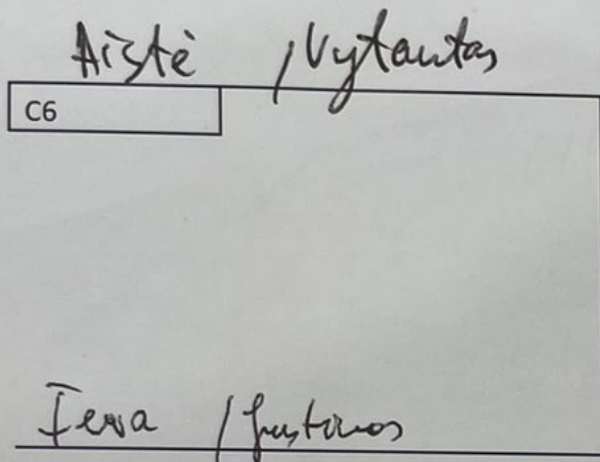 Aistė / Vytautas
C6
Ieva / Justinas